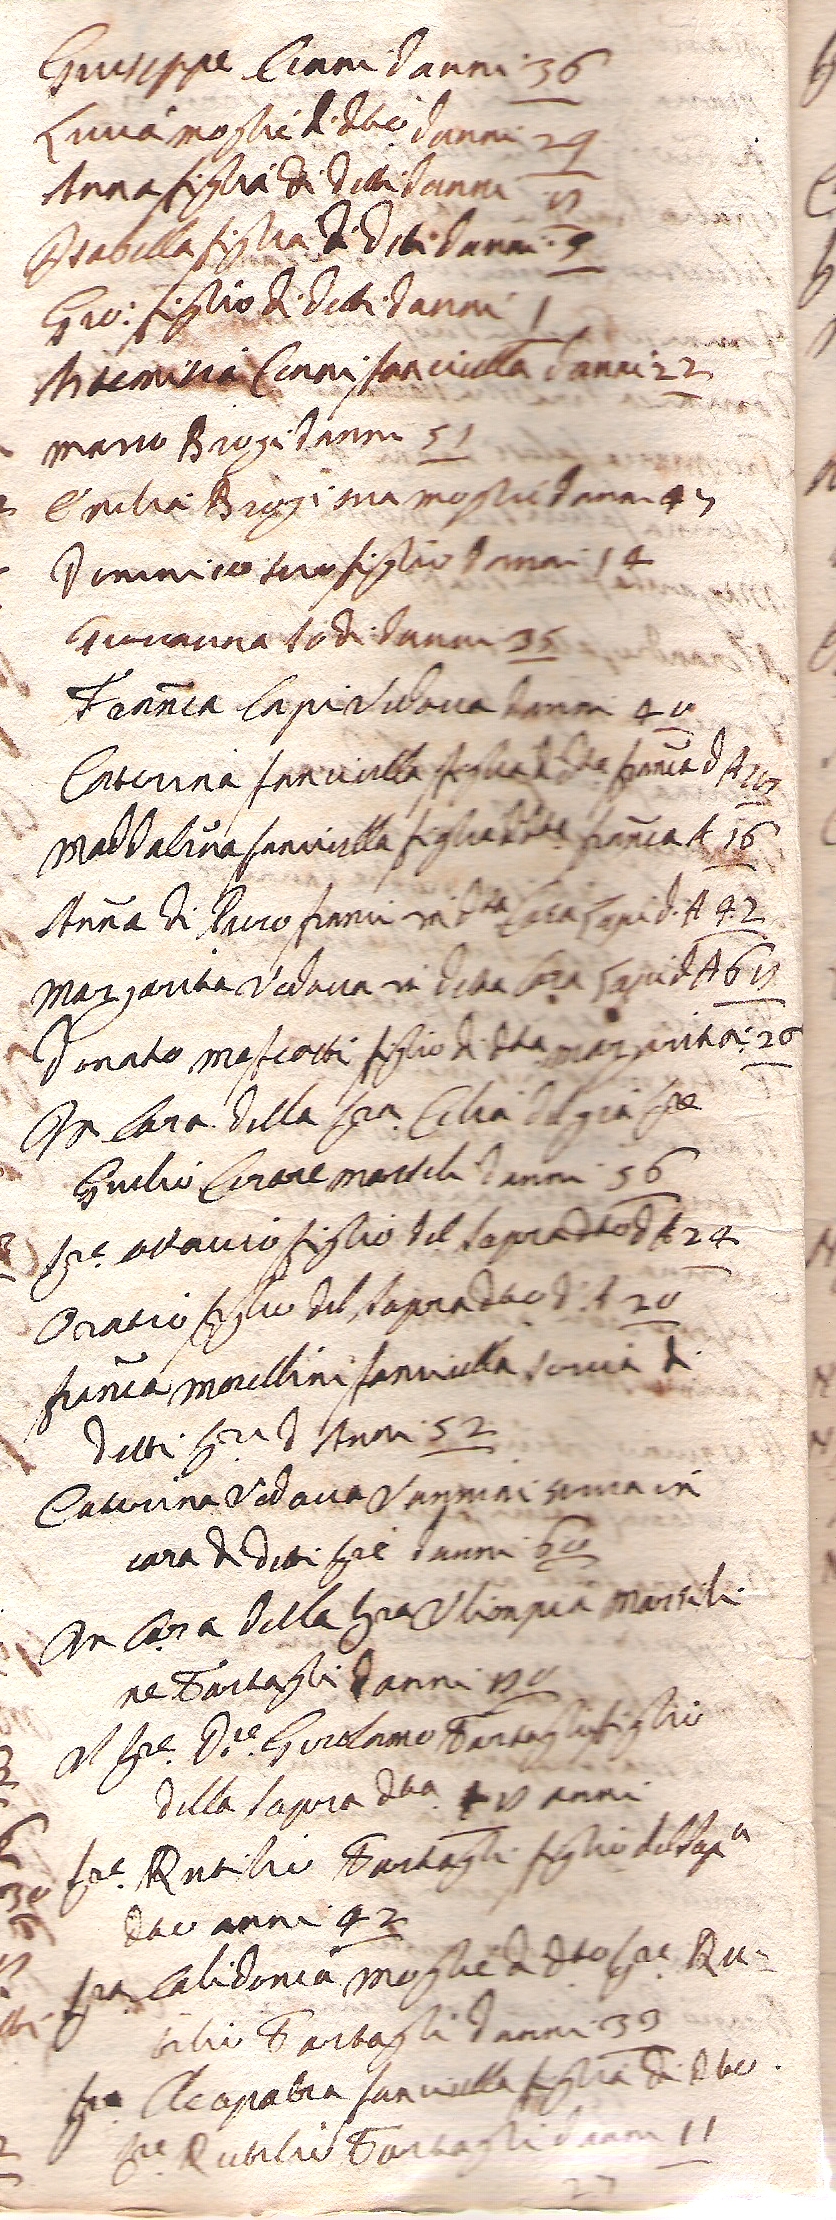 Giuseppe Cinni d'anni 36
Lucia moglie di dto d'anni 29
Anna figlia di detti d'anni
Isabella figlia di detti d'anni 9
Gio: figlio di detti d'anni 1
Artemisia Cinni fanciulla d'anni 22
mario Brogi d'anni 51
Emilia Brogi sua moglie d'anni 47
Domenico suo figlio d'anni 14
Giovanna Sodi d'anni 35
Franca Lapi Vedova d'anni 40
Caterina fanciulla figlia di dta franca d A
Maddalena fanciulla figlia di dta franca A 16
Anna di franci in dta Casa Lapi d. A 42
Margarita Vedova in detta Casa Lapi d A
Donato mascotti figlio di dta margarita: 26
In Casa della Sra. Cilia del già Sre
Giulio Cesare marsili d'anni 56
Sre. ottavio figlio del sopradto d A 24
Oratio figlio del sopradto d. A 20
franca morellini fanciulla serva di
detti Sri d Anni 52
Caterina Vedova Vannini serva in
casa di detti Sri d'anni 60
In Casa della Sra Olimpia Marsili
ne Tartagli d'anni
Il Sre. Dre. Girolamo Tartagli figlio
della sopra dta anni
Sre. Rutilio Tartagli figlio del Sopa
dto anni 42
Sra. Calidonia moglie di dto Sre. Ru-
tilio Tartagli d'anni 33
Sra Cleopatra fanciulla figlia di dto
Sre Rutilio Tartagli d'anni 11
27